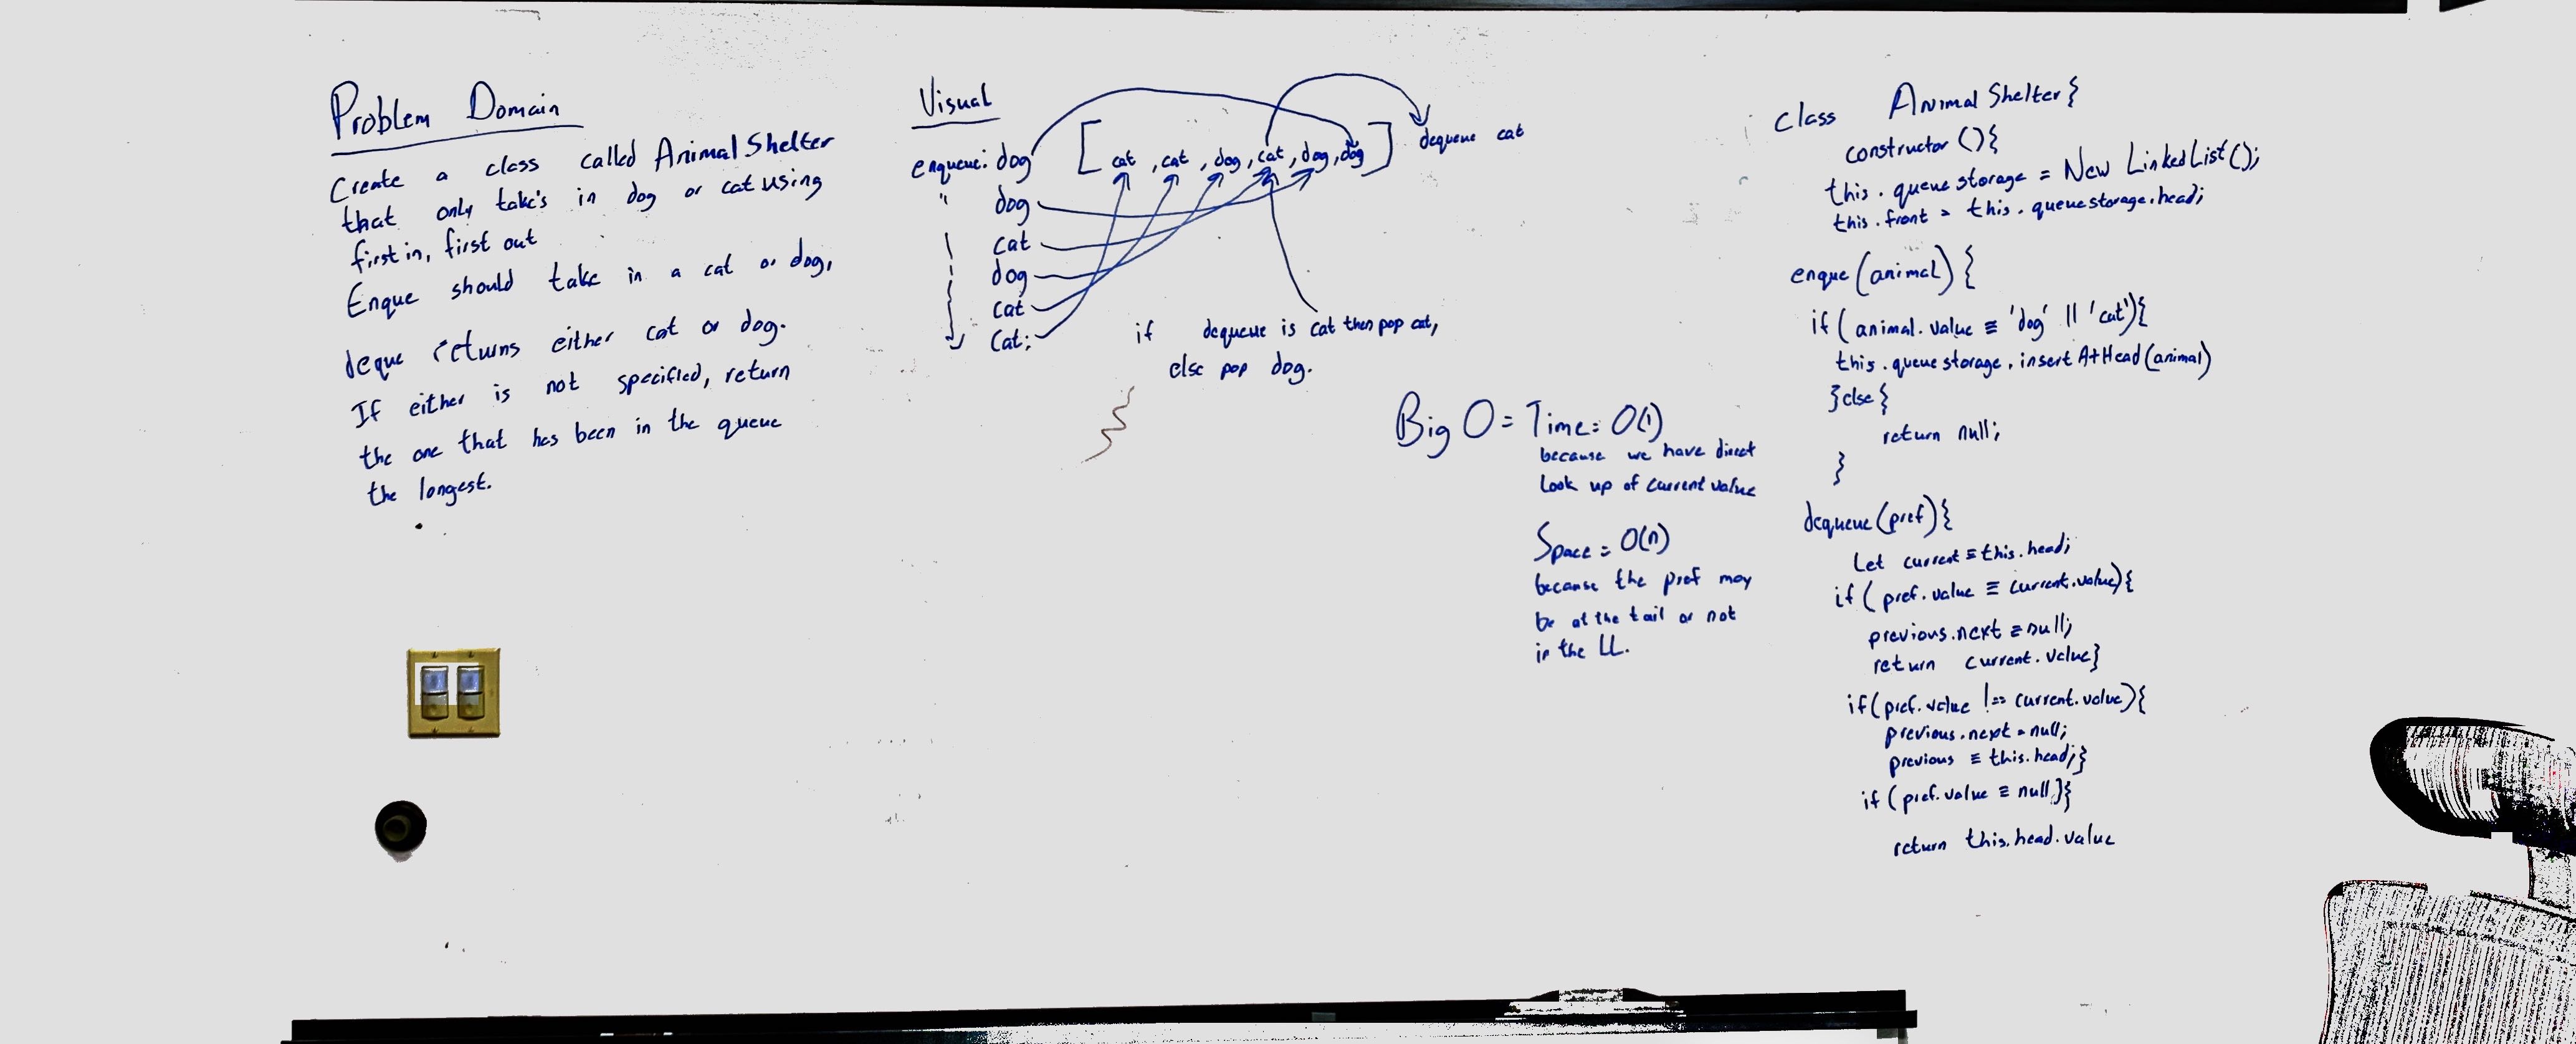 Problem Domain
Create a class called AnimalShelter
that only take's in dog or cat using
first in, first out
Enque should take in a cat or dog,
deque returns either cat or dog.
If either is not specified, return
the one that has been in the queue
the longest.
Visual
enqueue: dog [cat, cat, dog, cat, dog, dog] dequeue cat
" dog
cat
dog
cat
cat;
if dequeue is cat then pop cat,
else pop dog.
Big O = Time: O(1)
because we have direct
Look up of current value
Space = O(n)
because the pref may
be at the tail or not
in the LL.
class AnimalShelter{
constructor (){
this.queuestorage = New LinkedList();
this.front = this.queuestorage.head;
enque(animal){
if(animal.value ≡ 'dog' || 'cat'){
this.queuestorage.insertAtHead(animal)
}else{
return null;
}
dequeue(pref){
Let current = this.head;
if(pref.value ≡ current.value){
previous.next = null;
return current.value}
if(pref.value !== current.value){
previous.next = null;
previous ≡ this.head;}
if(pref.value ≡ null){
return this.head.value